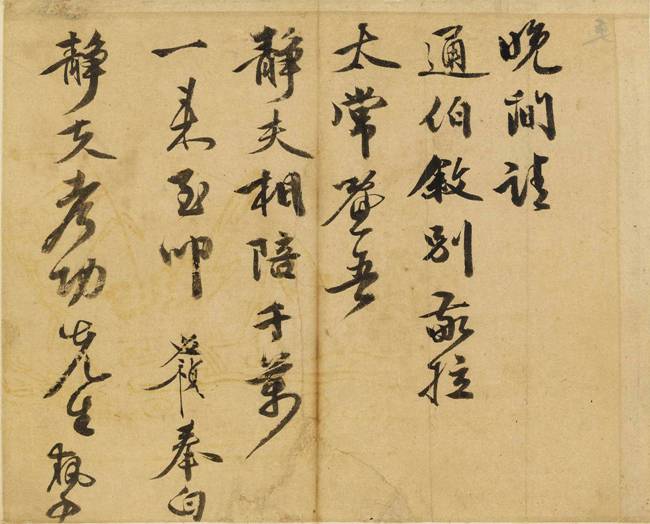 晚間請
通伯敘別敢拉
太常暨吾
靜夫相陪千萬
一來至叩 奉白
靜夫考功先生執事